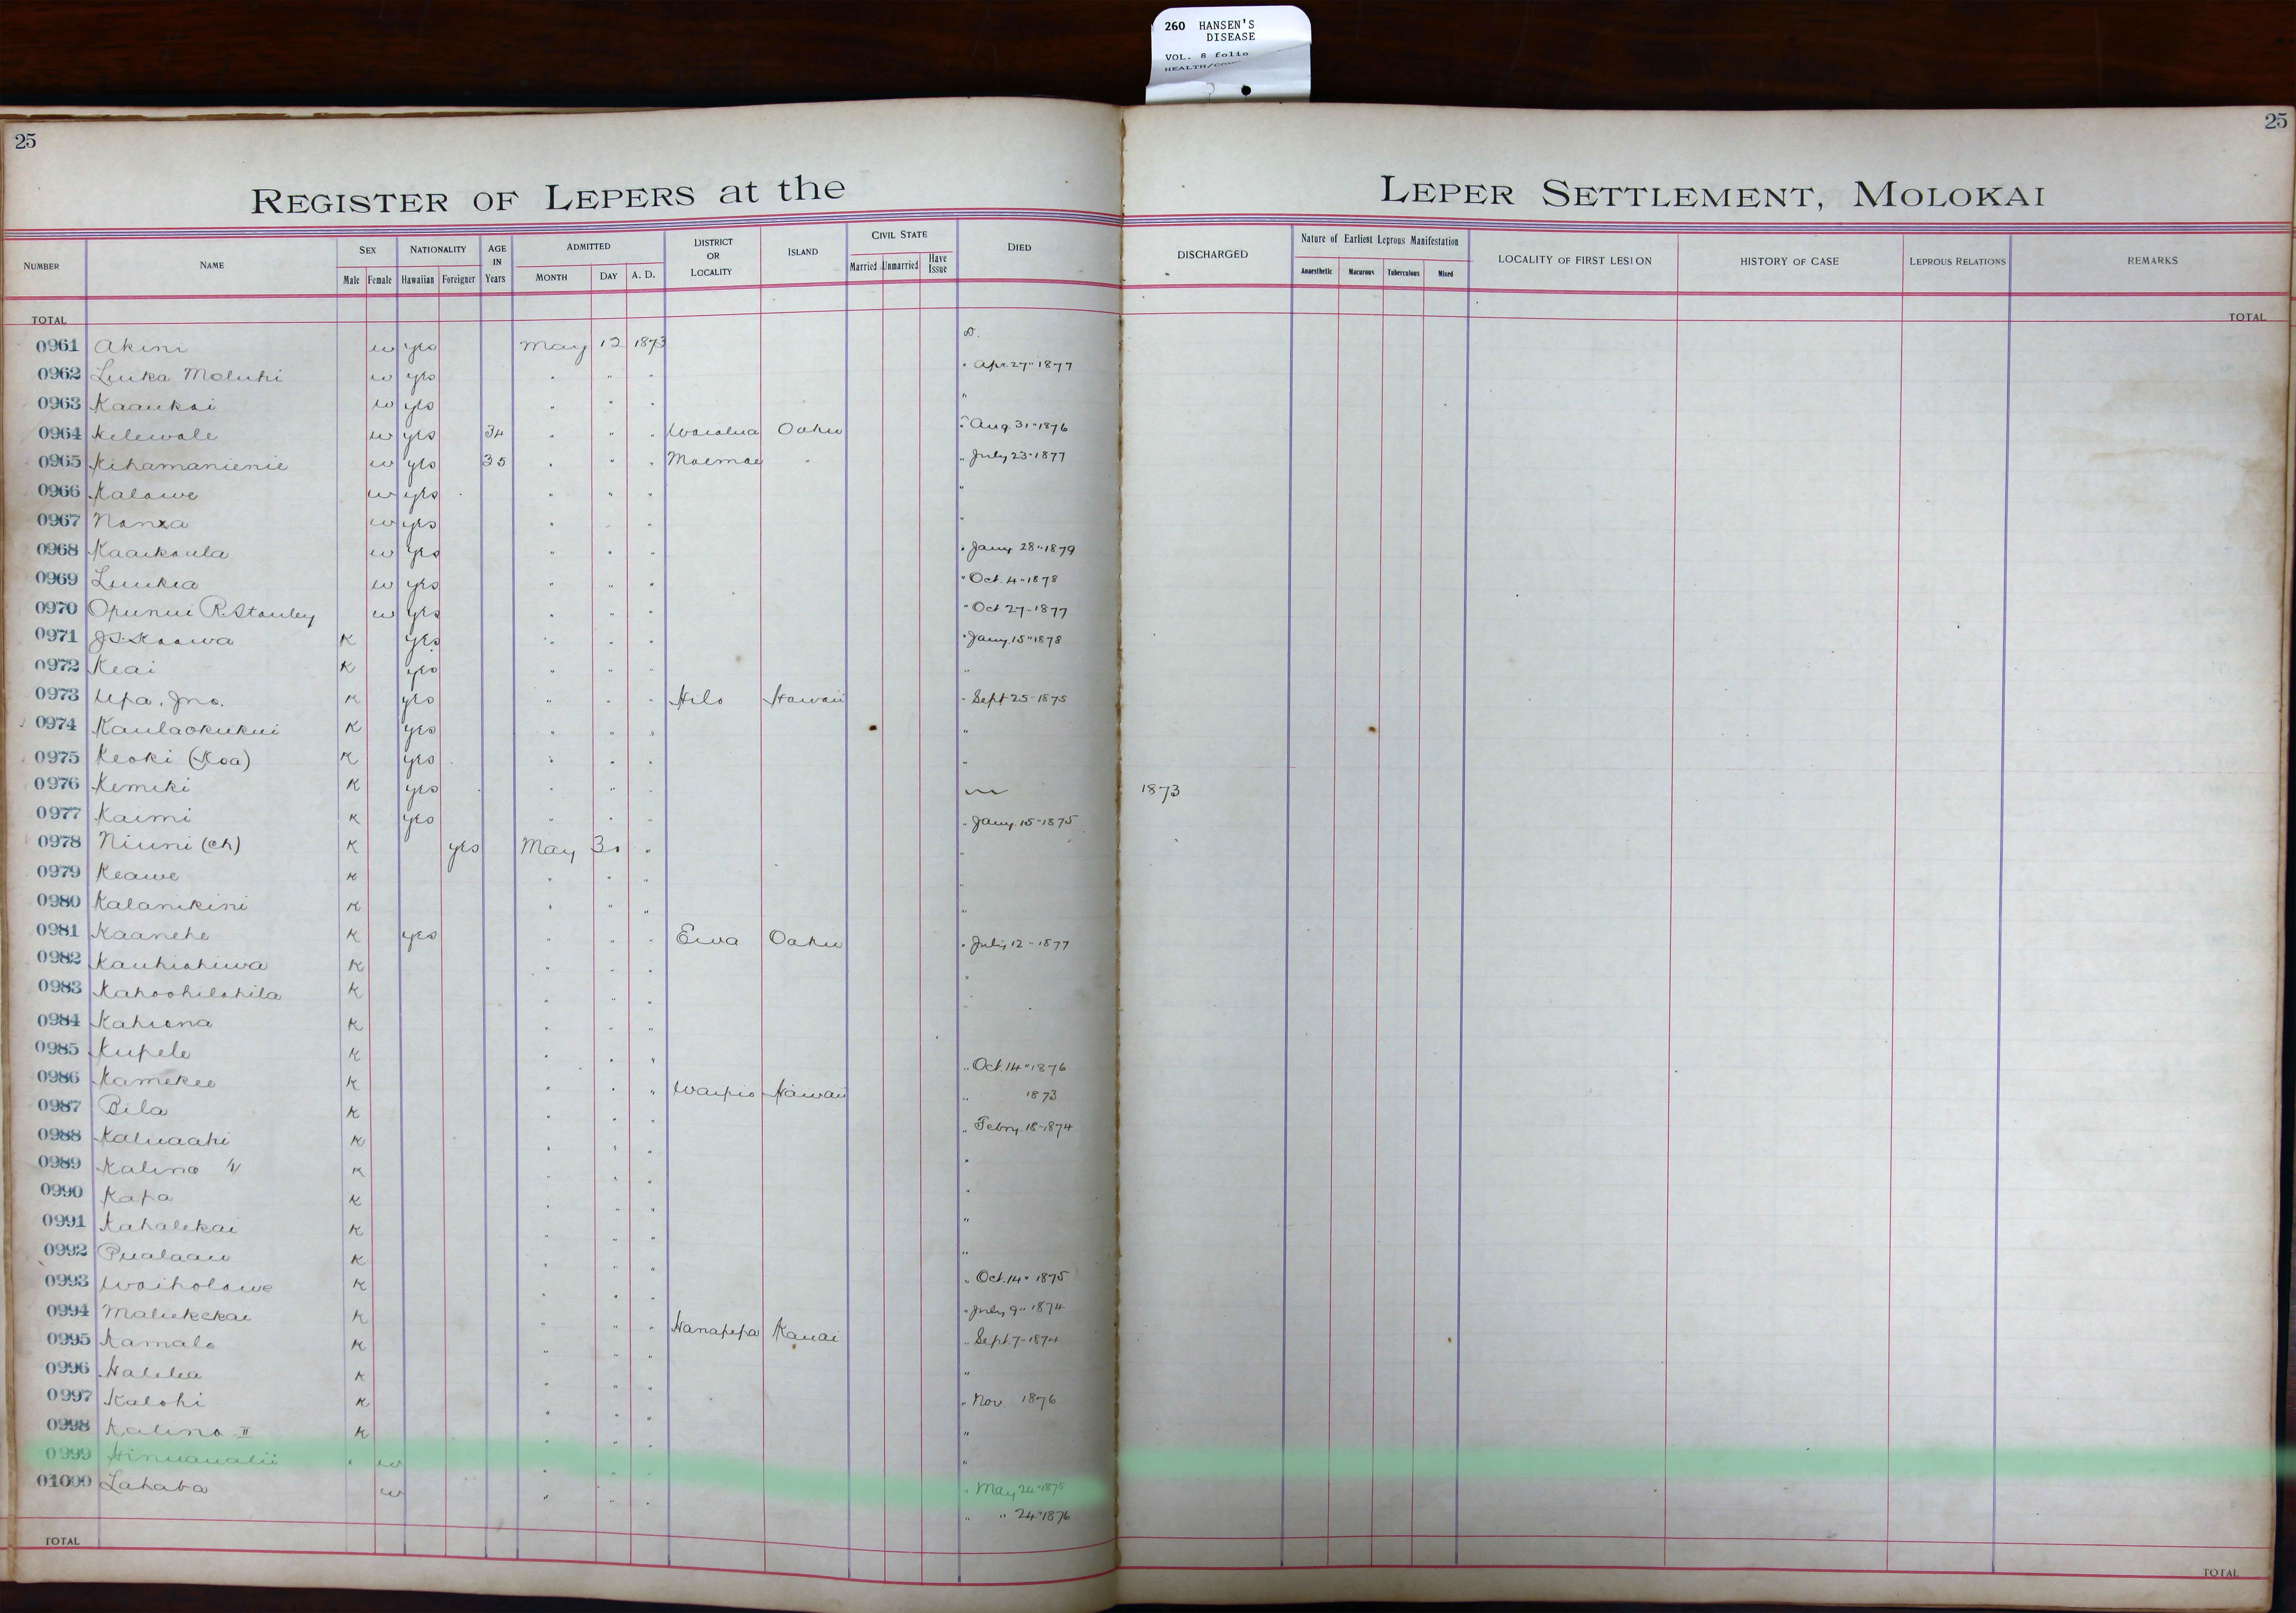 260 HANSEN'S
DISEASE
VOL. 8 folio
25
25
REGISTER OF LEPERS at the LEPER SETTLEMENT, MOLOKAI
NUMBER NAME SEX Male Female NATIONALITY Hawaiian Foreigner AGE IN Years ADMITTED MONTH DAY A. D. DISTRICT OR LOCALITY ISLAND CIVIL STATE Married Unmarried Have Issue DIED DISCHARGED Nature of Earliest Leprous Manifestation Anaesthetic Macurous Tuberculous Mixed LOCALITY OF FIRST LESION HISTORY OF CASE LEPROUS RELATIONS REMARKS
TOTAL TOTAL
0961 Akini w yes May 12 1873 D.
0962 Luika Moluhi w yes " " " " Apr. 27" 1877
0963 Kaaukai w yes " " " "
0964 Kelewale w yes 34 " " " Waialua Oahu " Aug. 31" 1876
0965 Kihamanienie w yes 35 " " " Moemoe " " July 23" 1877
0966 Kalawe w yes " " " "
0967 w yes " " " "
0968 Kaaikaula w yes " " " " Jany. 28" 1879
0969 Luukia w yes " " " " Oct. 4" 1878
0970 Opunui R. Stanley w yes " " " " Oct 27" 1877
0971 K yes " " " " Jany. 15" 1878
0972 Keai K yes " " " "
0973 Upa. Jno. K yes " " " Hilo Hawaii " Sept 25" 1875
0974 Kaulaokukui K yes " " " "
0975 Keoki (Koa) K yes " " " "
0976 Kemiki K yes " " " 1873
0977 Kaimi K yes " " " " Jany. 15" 1875
0978 Niuni (ch) K yes May 30 " "
0979 Keawe K " " " "
0980 Kalanikini K " " " "
0981 Kaanehe K yes " " " Ewa Oahu " July 12" 1877
0982 Kauhiohiwa K " " " "
0983 Kahoohilohila K " " " "
0984 Kahiona K " " " "
0985 Kupele K " " " " Oct. 14" 1876
0986 Kamekeo K " " " Waipio Hawaii " 1873
0987 Bila K " " " " Febry. 18" 1874
0988 Kaluaahi K " " " "
0989 Kalino K " " " "
0990 Kapa K " " " "
0991 Kahalekai K " " " "
0992 Pualaau K " " " "
0993 Waiholowe K " " " " Oct. 14" 1875
0994 Maliekekai K " " " " July 9" 1874
0995 Kamalo K " " " Hanapepa Kauai " Sept. 7" 1874
0996 Halelea K " " " "
0997 Kalohi K " " " " Nov. 1876
0998 Kalino II K " " " "
0999 Hinuaualii w " " " " May 24" 1875
01000 Lahaba w " " " " " 24" 1876
TOTAL TOTAL